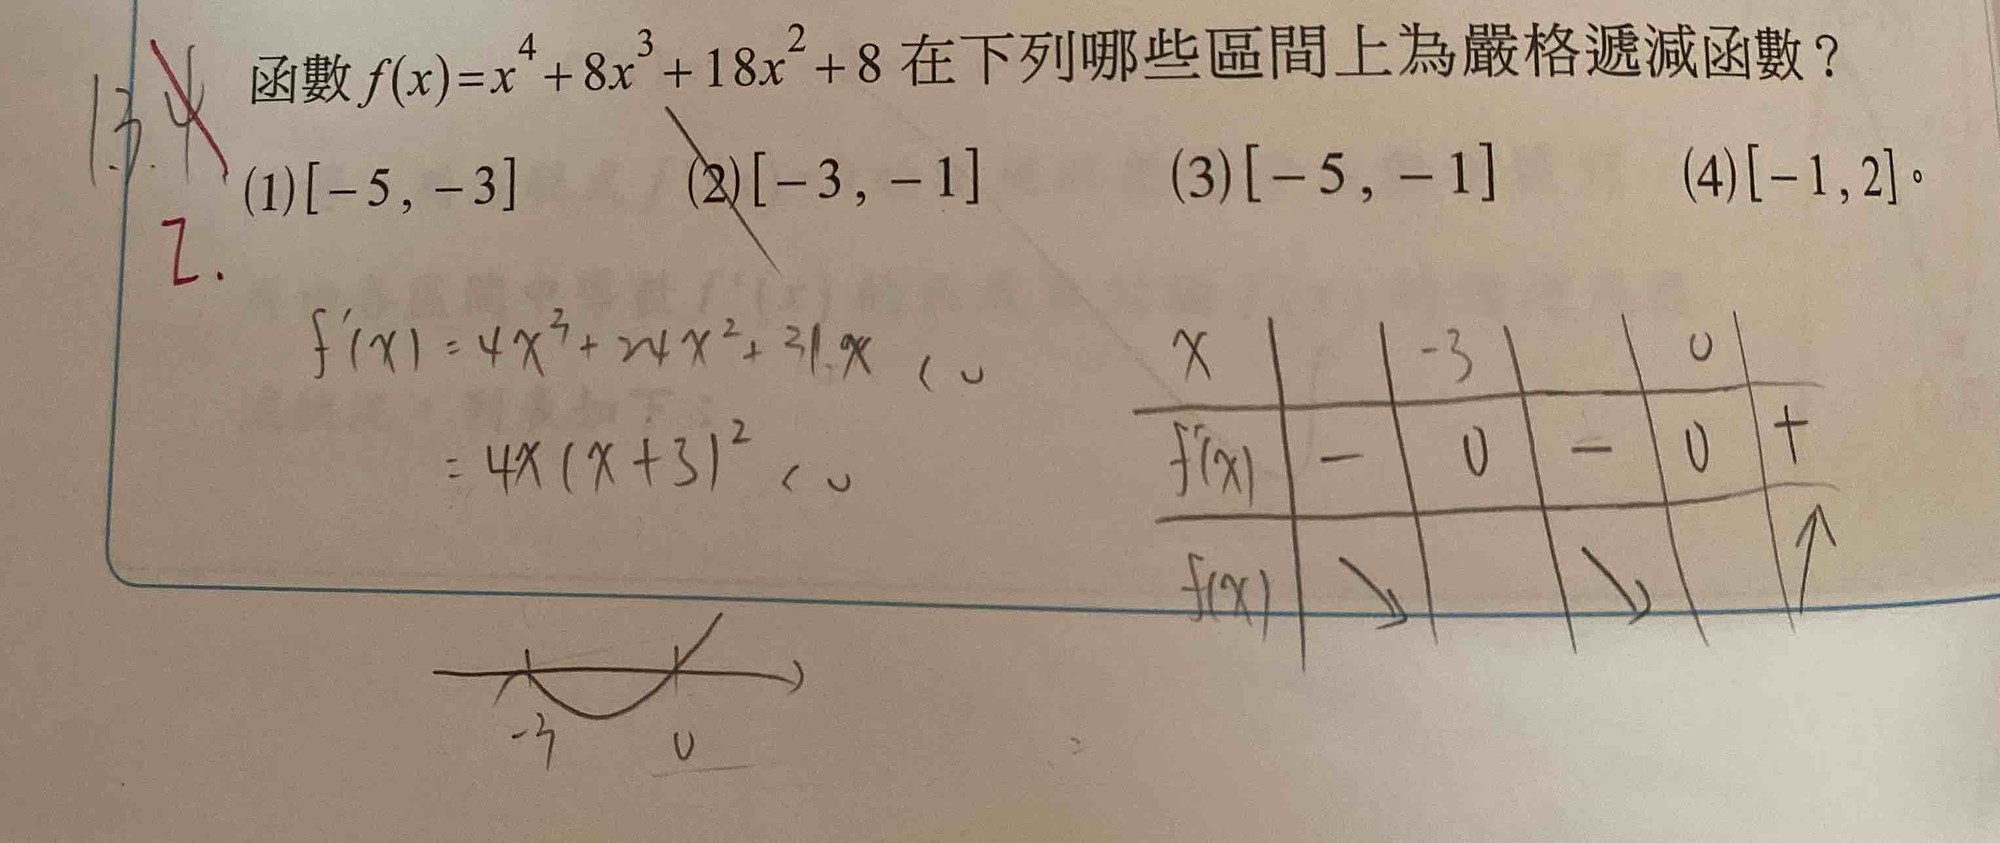 函數 f(x)=x⁴+8x³+18x²+8 在下列哪些區間上為嚴格遞減函數？
13.4
(1)[－5,－3] (2)[－3,－1] (3)[－5,－1] (4)[－1,2]。
2.
f'(x) = 4x³+24x²+36x < 0
= 4x(x+3)² < 0
x -3 0
f'(x) - 0 - 0 +
f(x) ↘ ↘ ↗
-3 0